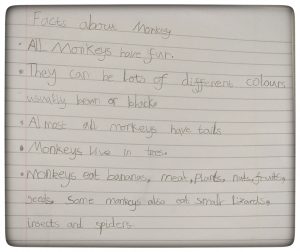 Facts about Monkey
• All Monkeys have fur.
• They can be lots of different colours
usually brown or black.
• Almost all monkeys have tails
• Monkeys live in trees.
• Monkeys eat bananas, meat, plants, nuts, fruits,
seeds. Some monkeys also eat small lizards,
insects and spiders.